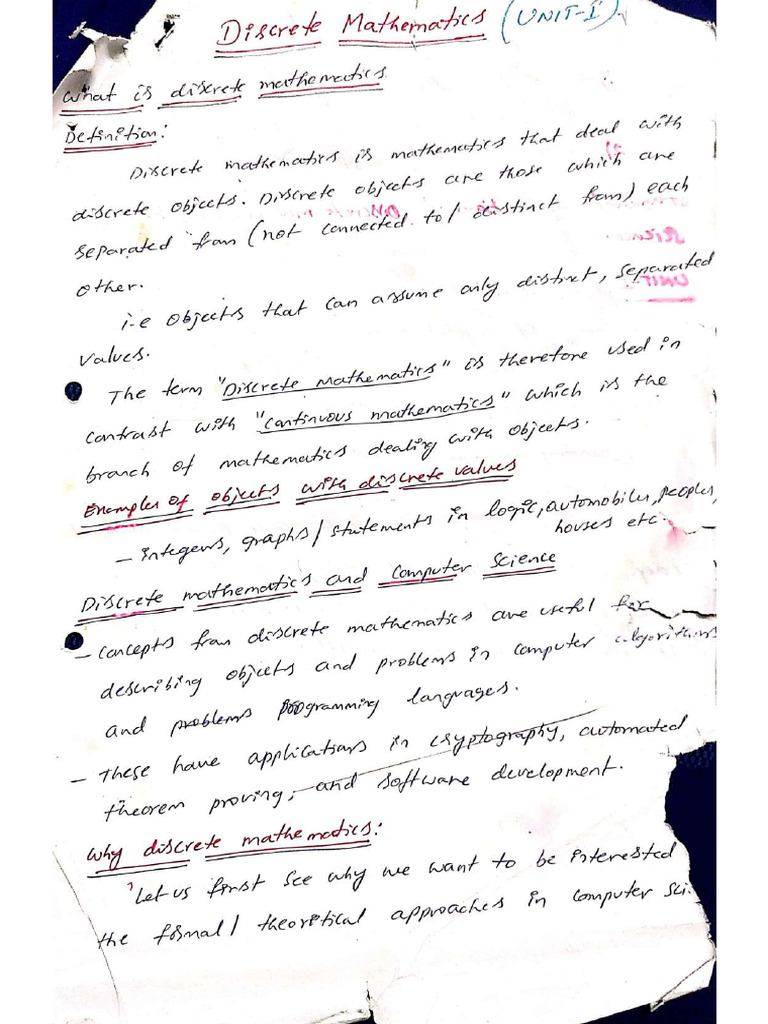 Discrete Mathematics (UNIT-I).
What is discrete mathematics
Definition:
Discrete mathematics is mathematics that deal with
discrete objects. Discrete objects are those which are
separated from (not connected to/distinct from) each
other.
i.e objects that can assume only distinct, separated
values.
The term "Discrete Mathematics" is therefore used in
contrast with "continuous mathematics" which is the
branch of mathematics dealing with objects.
Examples of objects with discrete values
- Integers, graphs/statements in logic, automobiles, peoples,
houses etc.
Discrete mathematics and computer science
- Concepts from discrete mathematics are useful for
describing objects and problems in computer algorithms
and problems programming languages.
- These have applications in cryptography, automated
theorem proving, and software development.
Why discrete mathematics:
'Let us first see why we want to be interested
the formal/theoritical approaches in computer sci.